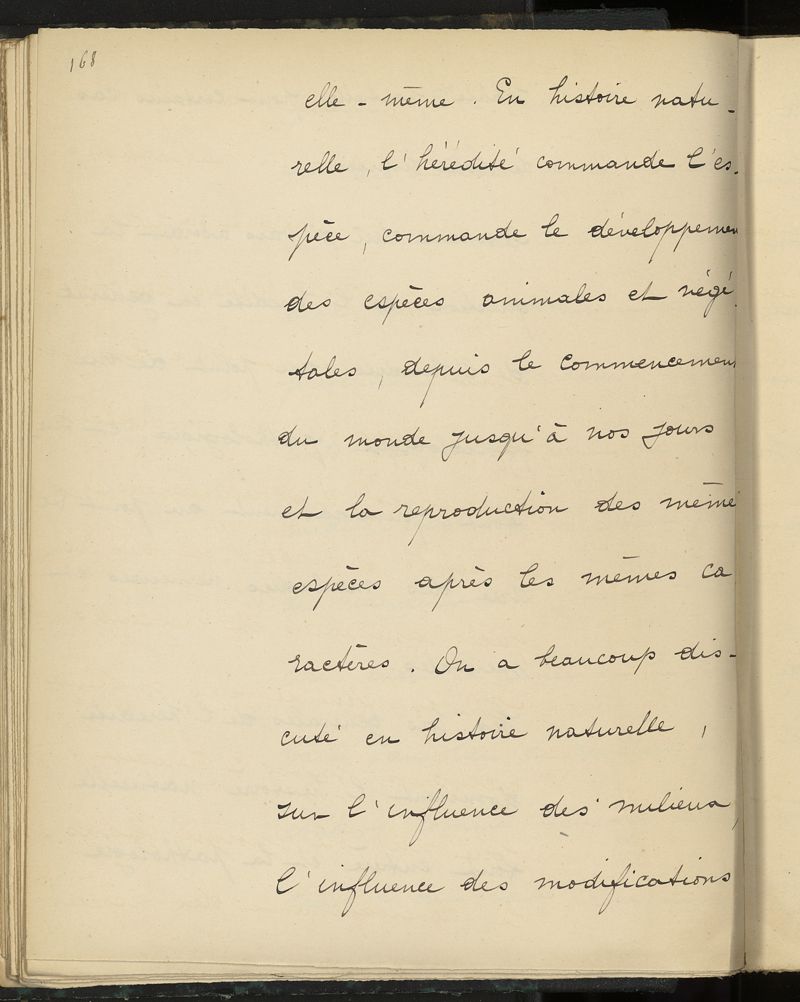 168
elle-même. En histoire natu-
relle, l'hérédité commande l'es-
pèce, commande le développemen
des espèces animales et végé
tales, depuis le commencemen
du monde jusqu'à nos jours
et la reproduction des même
espèces après les mêmes ca
ractères. On a beaucoup dis-
cuté en histoire naturelle,
sur l'influence des milieux,
l'influence des modifications